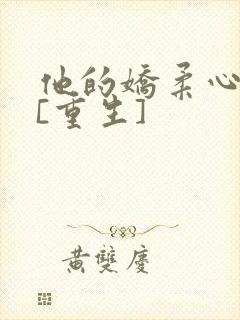 他的嬌柔心
[重生]
黄雙慶